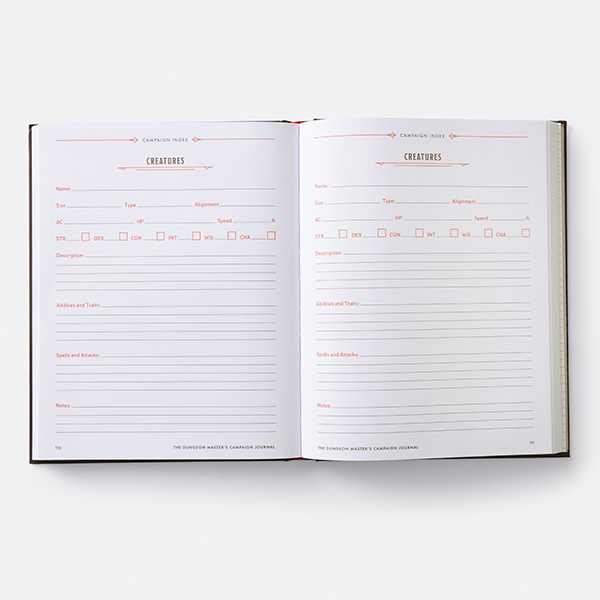 CAMPAIGN INDEX
CREATURES
Name:
Size Type Alignment
AC HP Speed ft
STR DEX CON INT WIS CHA
Description:
Abilities and Traits:
Spells and Attacks:
Notes:
THE DUNGEON MASTER'S CAMPAIGN JOURNAL
CAMPAIGN INDEX
CREATURES
Name:
Size Type Alignment
AC HP Speed ft
STR DEX CON INT WIS CHA
Description:
Abilities and Traits:
Spells and Attacks:
Notes:
THE DUNGEON MASTER'S CAMPAIGN JOURNAL